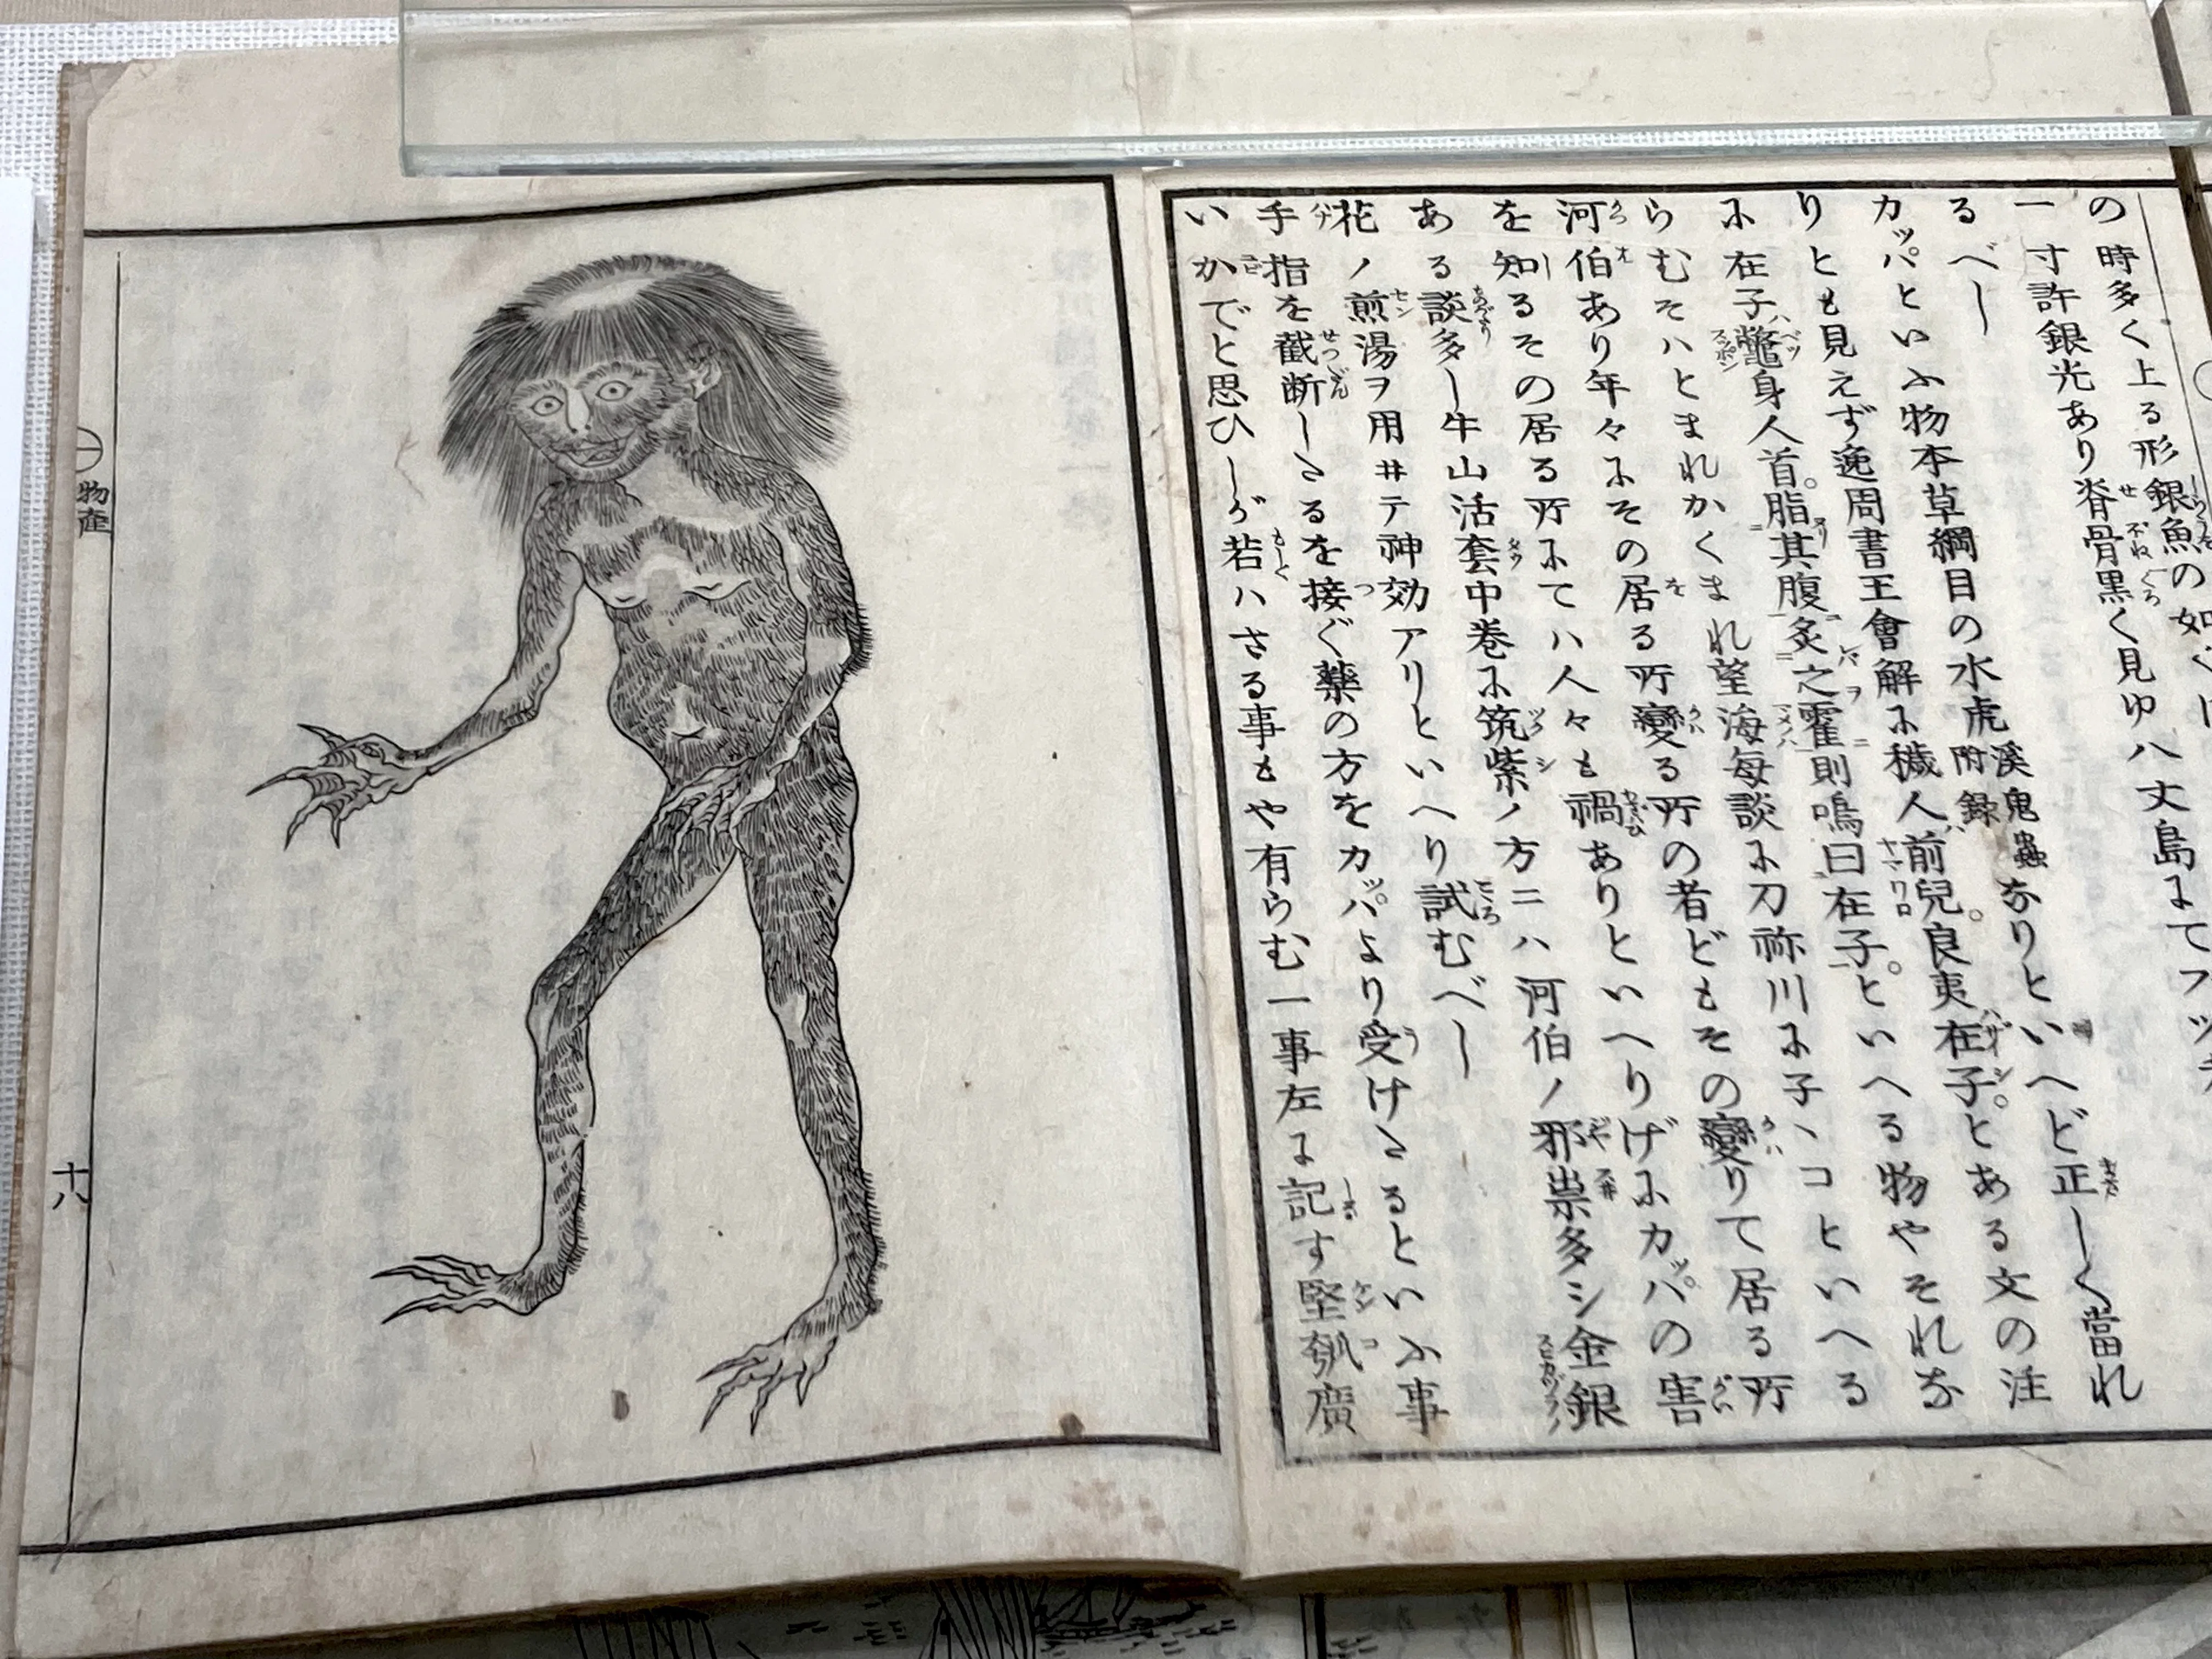 の時多く上る形銀魚の如く
一寸許銀光あり脊骨黒く見ゆ八丈島にてフツ
るべし
カッパといふ物本草綱目の水虎附録溪鬼蟲なりといへど正しく當れ
りとも見えず逸周書王會解に穢人前兒良夷在子とある文の注
に在子鼈身人首脂其腹炙之霍則鳴曰在子といへる物やそれな
らむそハとまれかくまれ望海毎談に刀祢川に子ヽコといへる
河伯あり年々にその居る所變る所の者どもその變りて居る所
を知るその居る所にてハ人々も禍ありといへりげにカッパの害
ある談多し牛山活套中巻に筑紫ノ方ニハ河伯ノ邪祟多シ金銀
花ノ煎湯ヲ用ヰテ神効アリといへり試むべし
手指を截断したるを接ぐ藥の方をカッパより受けたるといふ事
いかでと思ひしが若ハさる事もや有らむ一事左に記す堅瓠廣
物産
十八